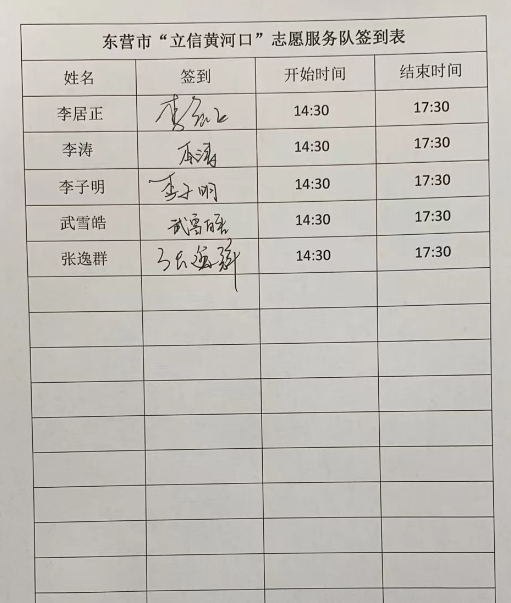 东营市“立信黄河口”志愿服务队签到表
姓名 签到 开始时间 结束时间
李居正 李居正 14:30 17:30
李涛 李涛 14:30 17:30
李子明 李子明 14:30 17:30
武雪皓 武雪皓 14:30 17:30
张逸群 张逸群 14:30 17:30